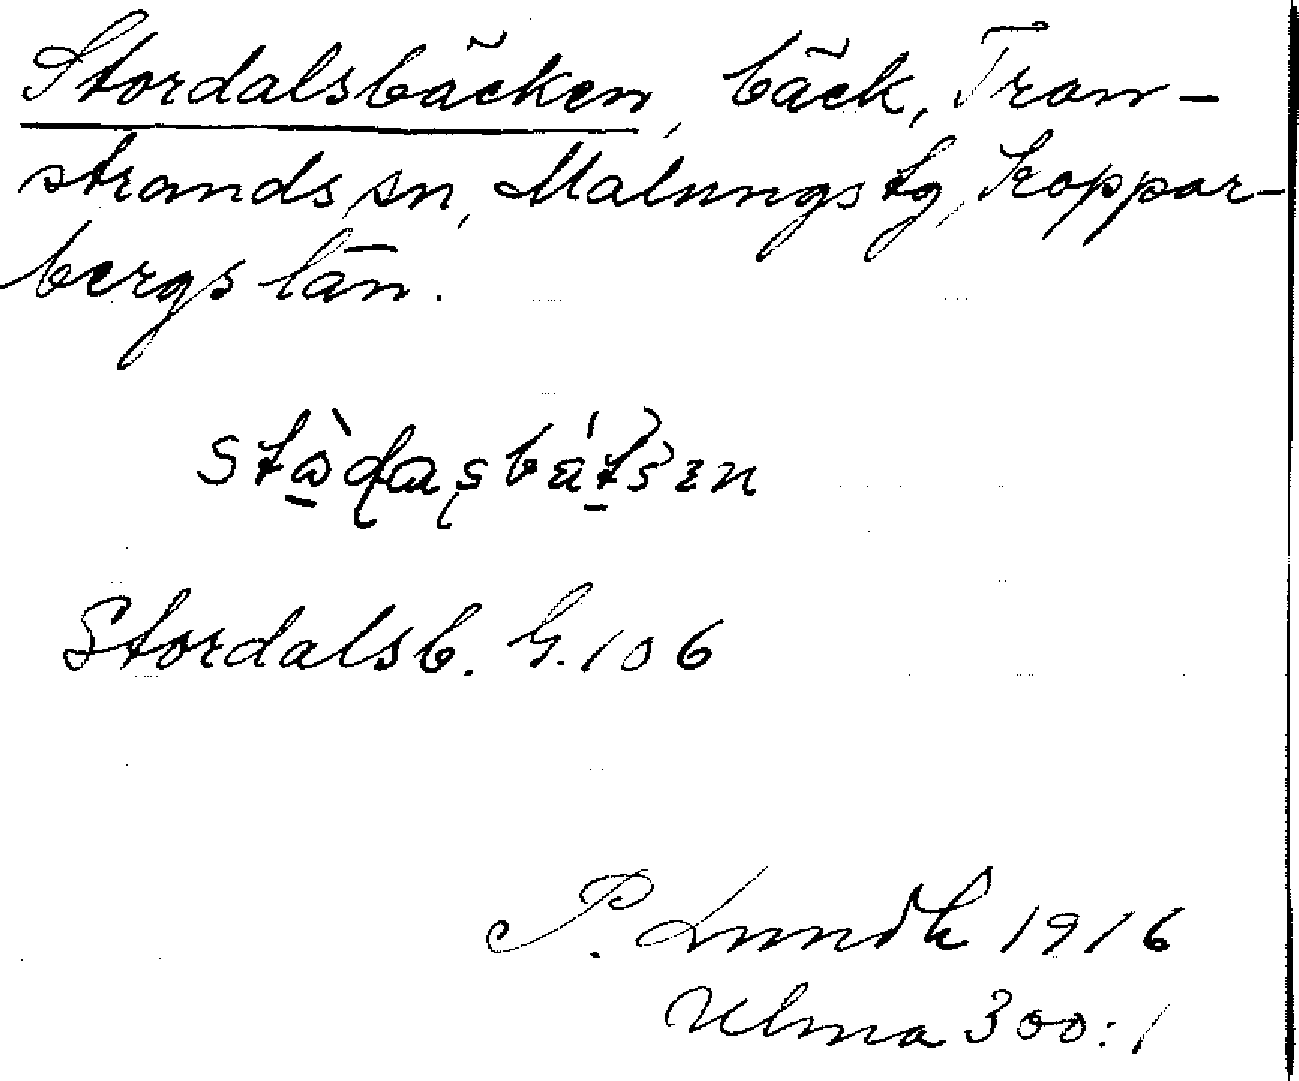 Stordalsbäcken, bäck, Tran-
strands sn, Malungs tg, Koppar-
bergs län.
Stordalsb. G. 106
P. Lundh 1916
Ulma 300:1